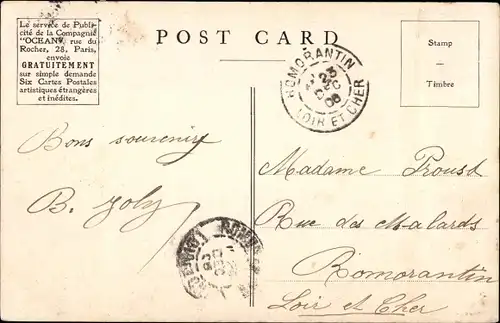 Le service de Publi-
cité de la Compagnie
"OCEAN", rue du
Rocher, 28, Paris,
envoie
GRATUITEMENT
sur simple demande
Six Cartes Postales
artistiques étrangères
et inédites.
POST CARD
Stamp
-
Timbre
ROMORANTIN
25
DEC
06
LOIR ET CHER
Bons souvenirs
B. Joly
Madame Proust
Rue des Malards
Romorantin
Loir et Cher